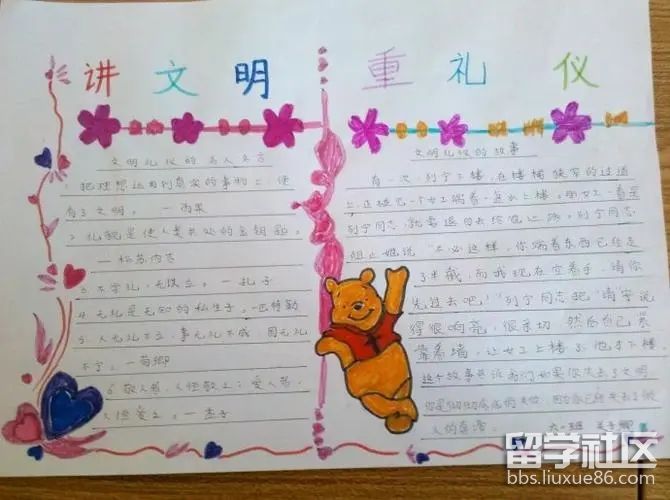 讲文明 重礼仪
文明礼仪的名人名言
1、把理想运用到真实的事物上,便
有了文明。 —雨果
2、礼貌是使人类共处的金钥匙。
—松苏内吉
3、不学礼,无以立。—孔子
4、无礼是无知的私生子。—巴特勒
5、人无礼不立,事无礼不成,国无礼
不宁。—荀卿
6、敬人者,人恒敬之;爱人者,
人恒爱之。—孟子
文明礼仪的故事
有一次,列宁下楼,在楼梯狭窄的过道
上,正碰见一个女工端着一盆水上楼。那女工一看是
列宁同志,就要退回去给他让路。列宁
阻止她说:“不必这样,你端着东西已经走
了半截,而我现在空着手,请你
先过去吧!”列宁同志把“请”字说
得很响亮,很亲切。然后自己紧
靠着墙,让女工上楼了,他才下楼。
这个故事告诉我们如果你失去了文明
留学社区
bbs.liuxue86.com